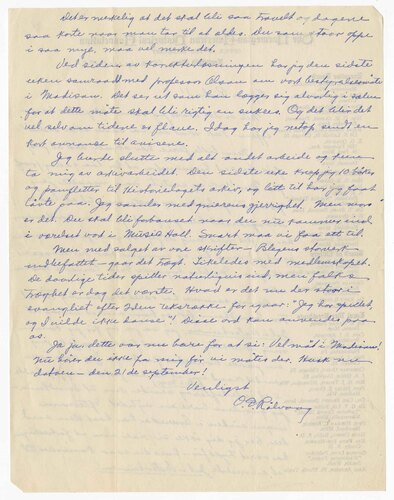 Det er merkelig at det skal bli saa travelt og dagene
saa korte naar man tar til at eldes. Du som staar oppe
i saa mye, maa vel merke det.
Ved siden av korrekturlesningen har jeg den sidste
uken samraadd med professor Olson om vort bestyrelsesmøte
i Madison. Det ser ut som han legger sig alvorlig i selen
for at dette møte skal bli rigtig en sukces. Og det blir det
vel selv om tidene er flaue. Idag har jeg netop sendt en
kort avertisse til aviserne.
Jeg burde slutte med alt andet arbeide og kun
ta mig av arkivarbeidet. Den sidste uke knappy 10 bøker
og pamfletter til Historielagets arkiv, og litt til har jeg faat
løfte paa. Jeg samler med gnierens gjerrighet. Men moro
er det. Du skal bli forbauset naar du nu kommer ind
i værelset vort i Music Hall. Snart maa vi faa ett til.
Men med salget av vore skrifter – Blegens storverk
indbefattet – gaar det trægt. Likeledes med medlemskapet.
De daarlige tider spiller naturligvis ind, men folks
træghet er dog det værste. Hvad er det nu der staar i
evangeliet efter 2den rekke for igaar: "Jeg har spillet,
og I vilde ikke danse"! Disse ord kan anvendes paa
os.
Ja ja, dette var nu bare for at si: Vel møt i Madison!
Nu høier du ikke fra mig før vi møtes der. Husk nu
datoen – den 21 de september!
Venligst
O. E. Rölvaag